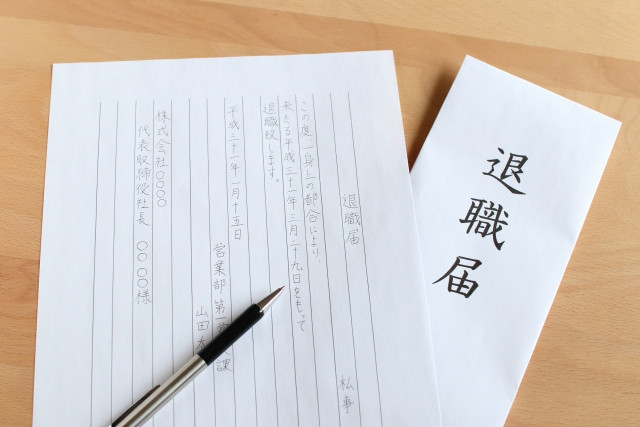 退職届
退職届
私事
この度一身上の都合により、
来たる平成三十一年三月二十九日をもって
退職致します。
平成三十一年一月十五日
営業部 第一 課
山田
株式会社○○○○
代表取締役社長 ○○ ○○様